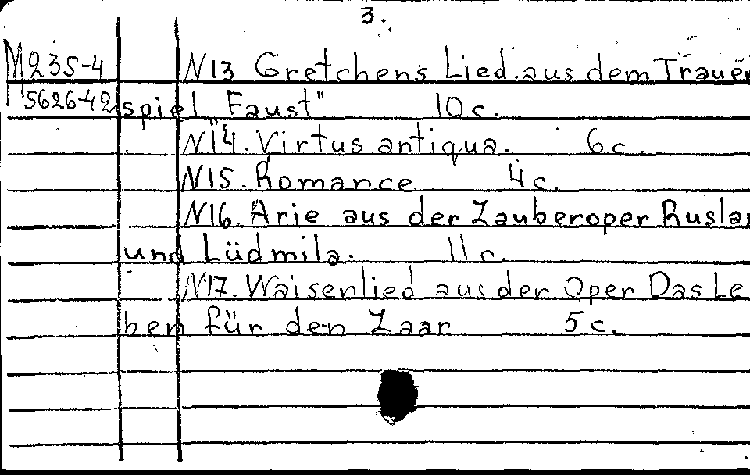 3.
M235-4 N13 Gretchens Lied aus dem Trauer
5626-42 spiel „Faust" 10 c.
N14. Virtus antiqua. 6 c.
N15. Romance 4 c.
N16. Arie aus der Zauberoper Ruslan
und Lüdmila. 11 c.
N17. Waisenlied aus der Oper Das Le
ben für den Zaar 5 c.